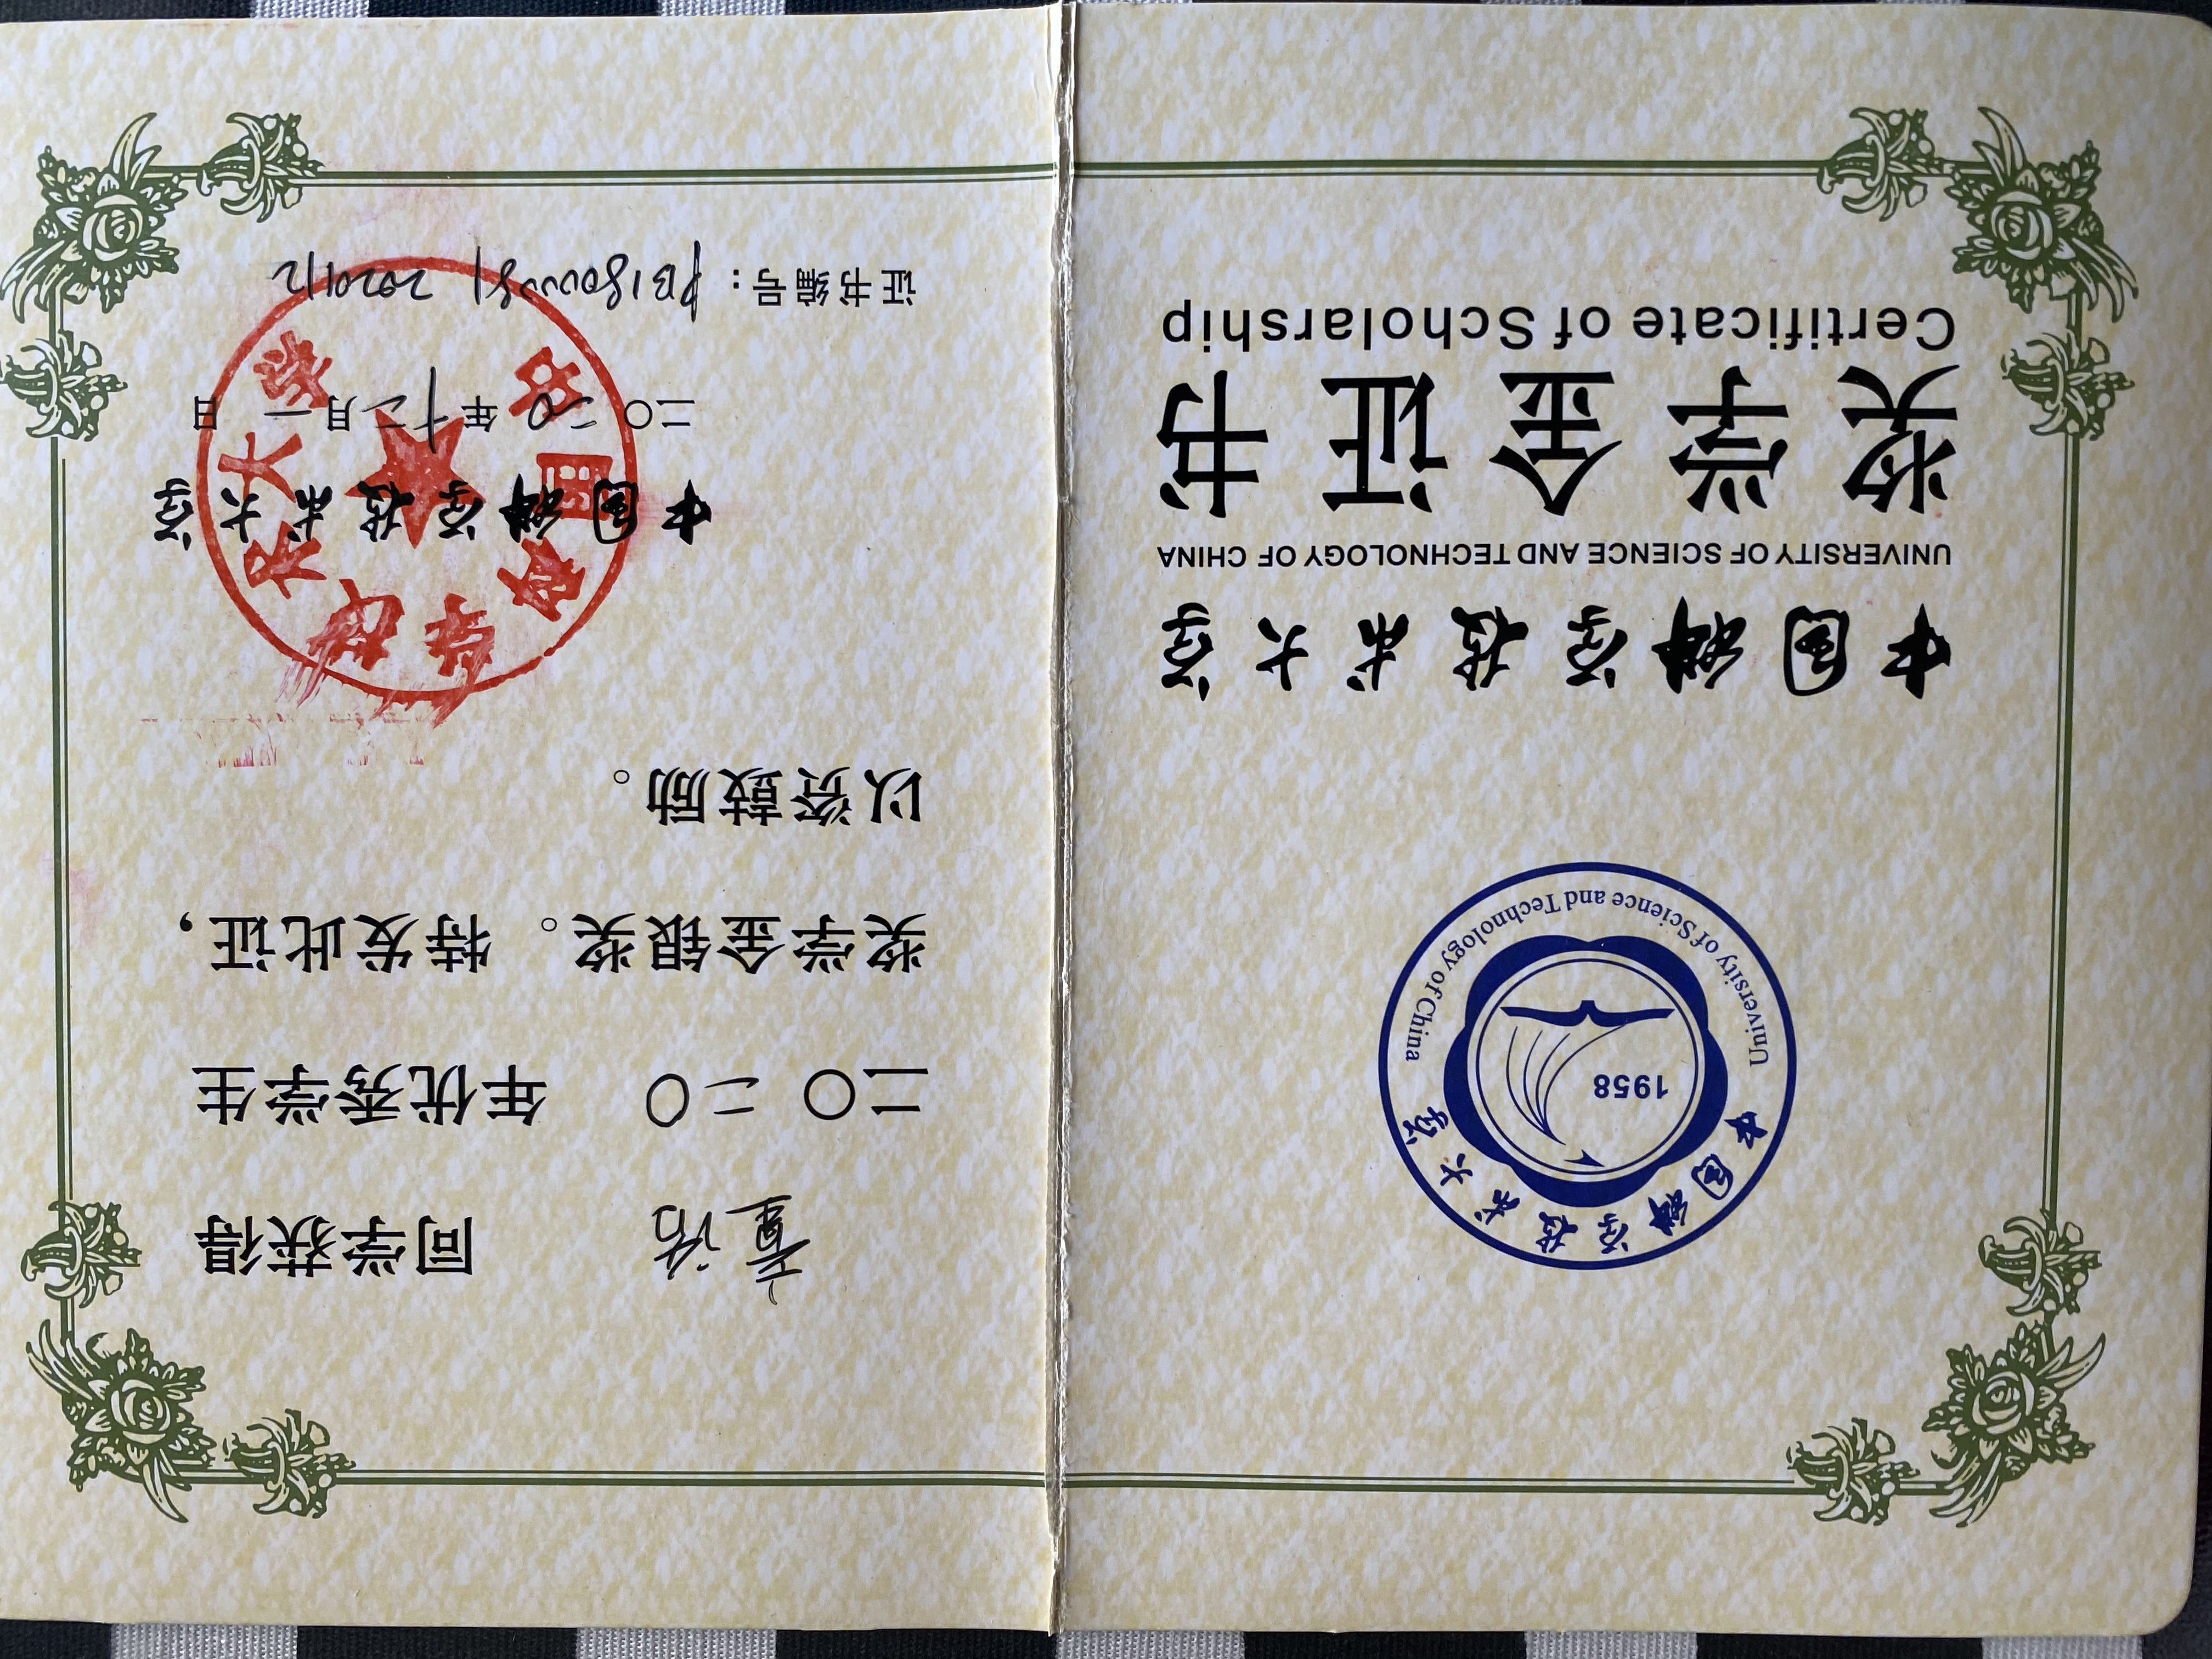 中国科学技术大学
1958
University of Science and Technology of China
中国科学技术大学
UNIVERSITY OF SCIENCE AND TECHNOLOGY OF CHINA
奖学金证书
Certificate of Scholarship
童话 同学获得
二〇二〇 年优秀学生
奖学金银奖。特发此证，
以资鼓励。
中国科学技术大学
中国科学技术大学
二〇二〇年十二月一日
证书编号：PB18000081 2020112